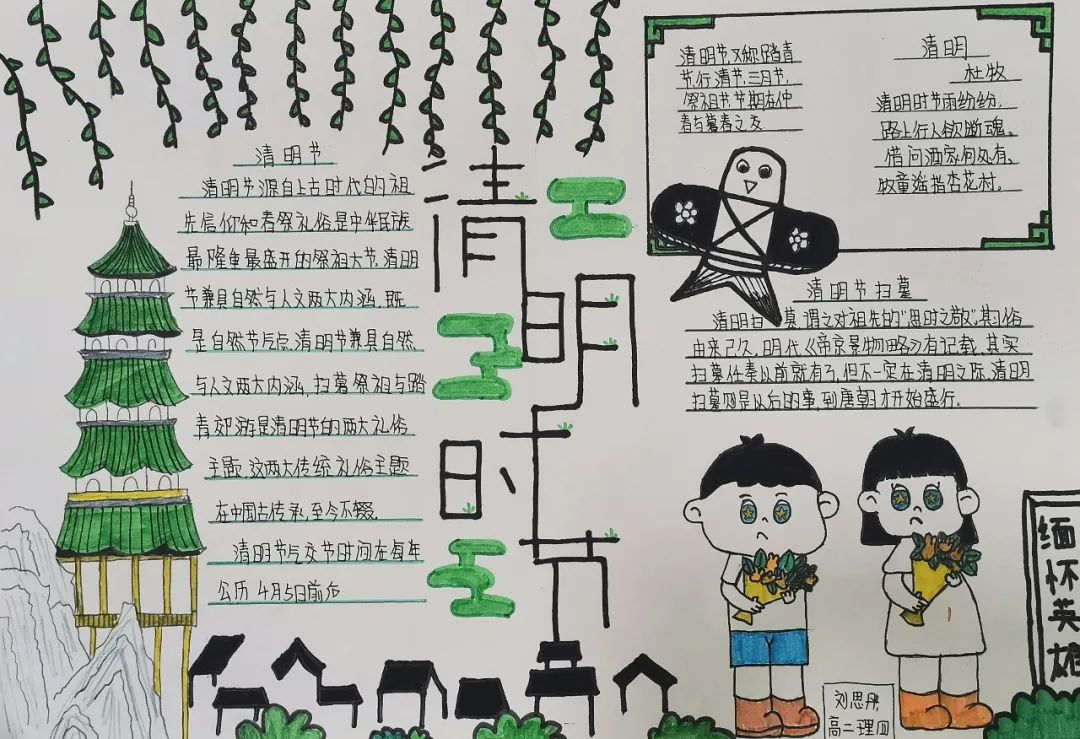 清明节
清明节源自上古时代的祖
先信仰和春祭礼俗是中华民族
最隆重最盛开的祭祖大节.清明
节兼具自然与人文两大内涵,既
是自然节气点.清明节兼具自然
与人文两大内涵,扫墓祭祖与踏
青郊游是清明节的两大礼俗
主题.这两大传统礼俗主题
在中国古传承,至今不辍.
清明节气交节时间在每年
公历4月5日前后
清明时节
清明节,又称踏青
节行清节,三月节,
祭祖节,节期在仲
春与暮春之交
清明
杜牧
清明时节雨纷纷.
路上行人欲断魂。
借问酒家何处有,
牧童遥指杏花村.
清明节扫墓
清明扫墓,谓之对祖先的"思时之敬",其习俗
由来已久,明代《帝京景物略》有记载.其实
扫墓在秦以前就有了,但不一定在清明之际,清明
扫墓则是以后的事,到唐朝才开始盛行.
缅怀英雄
刘思彤
高二理四